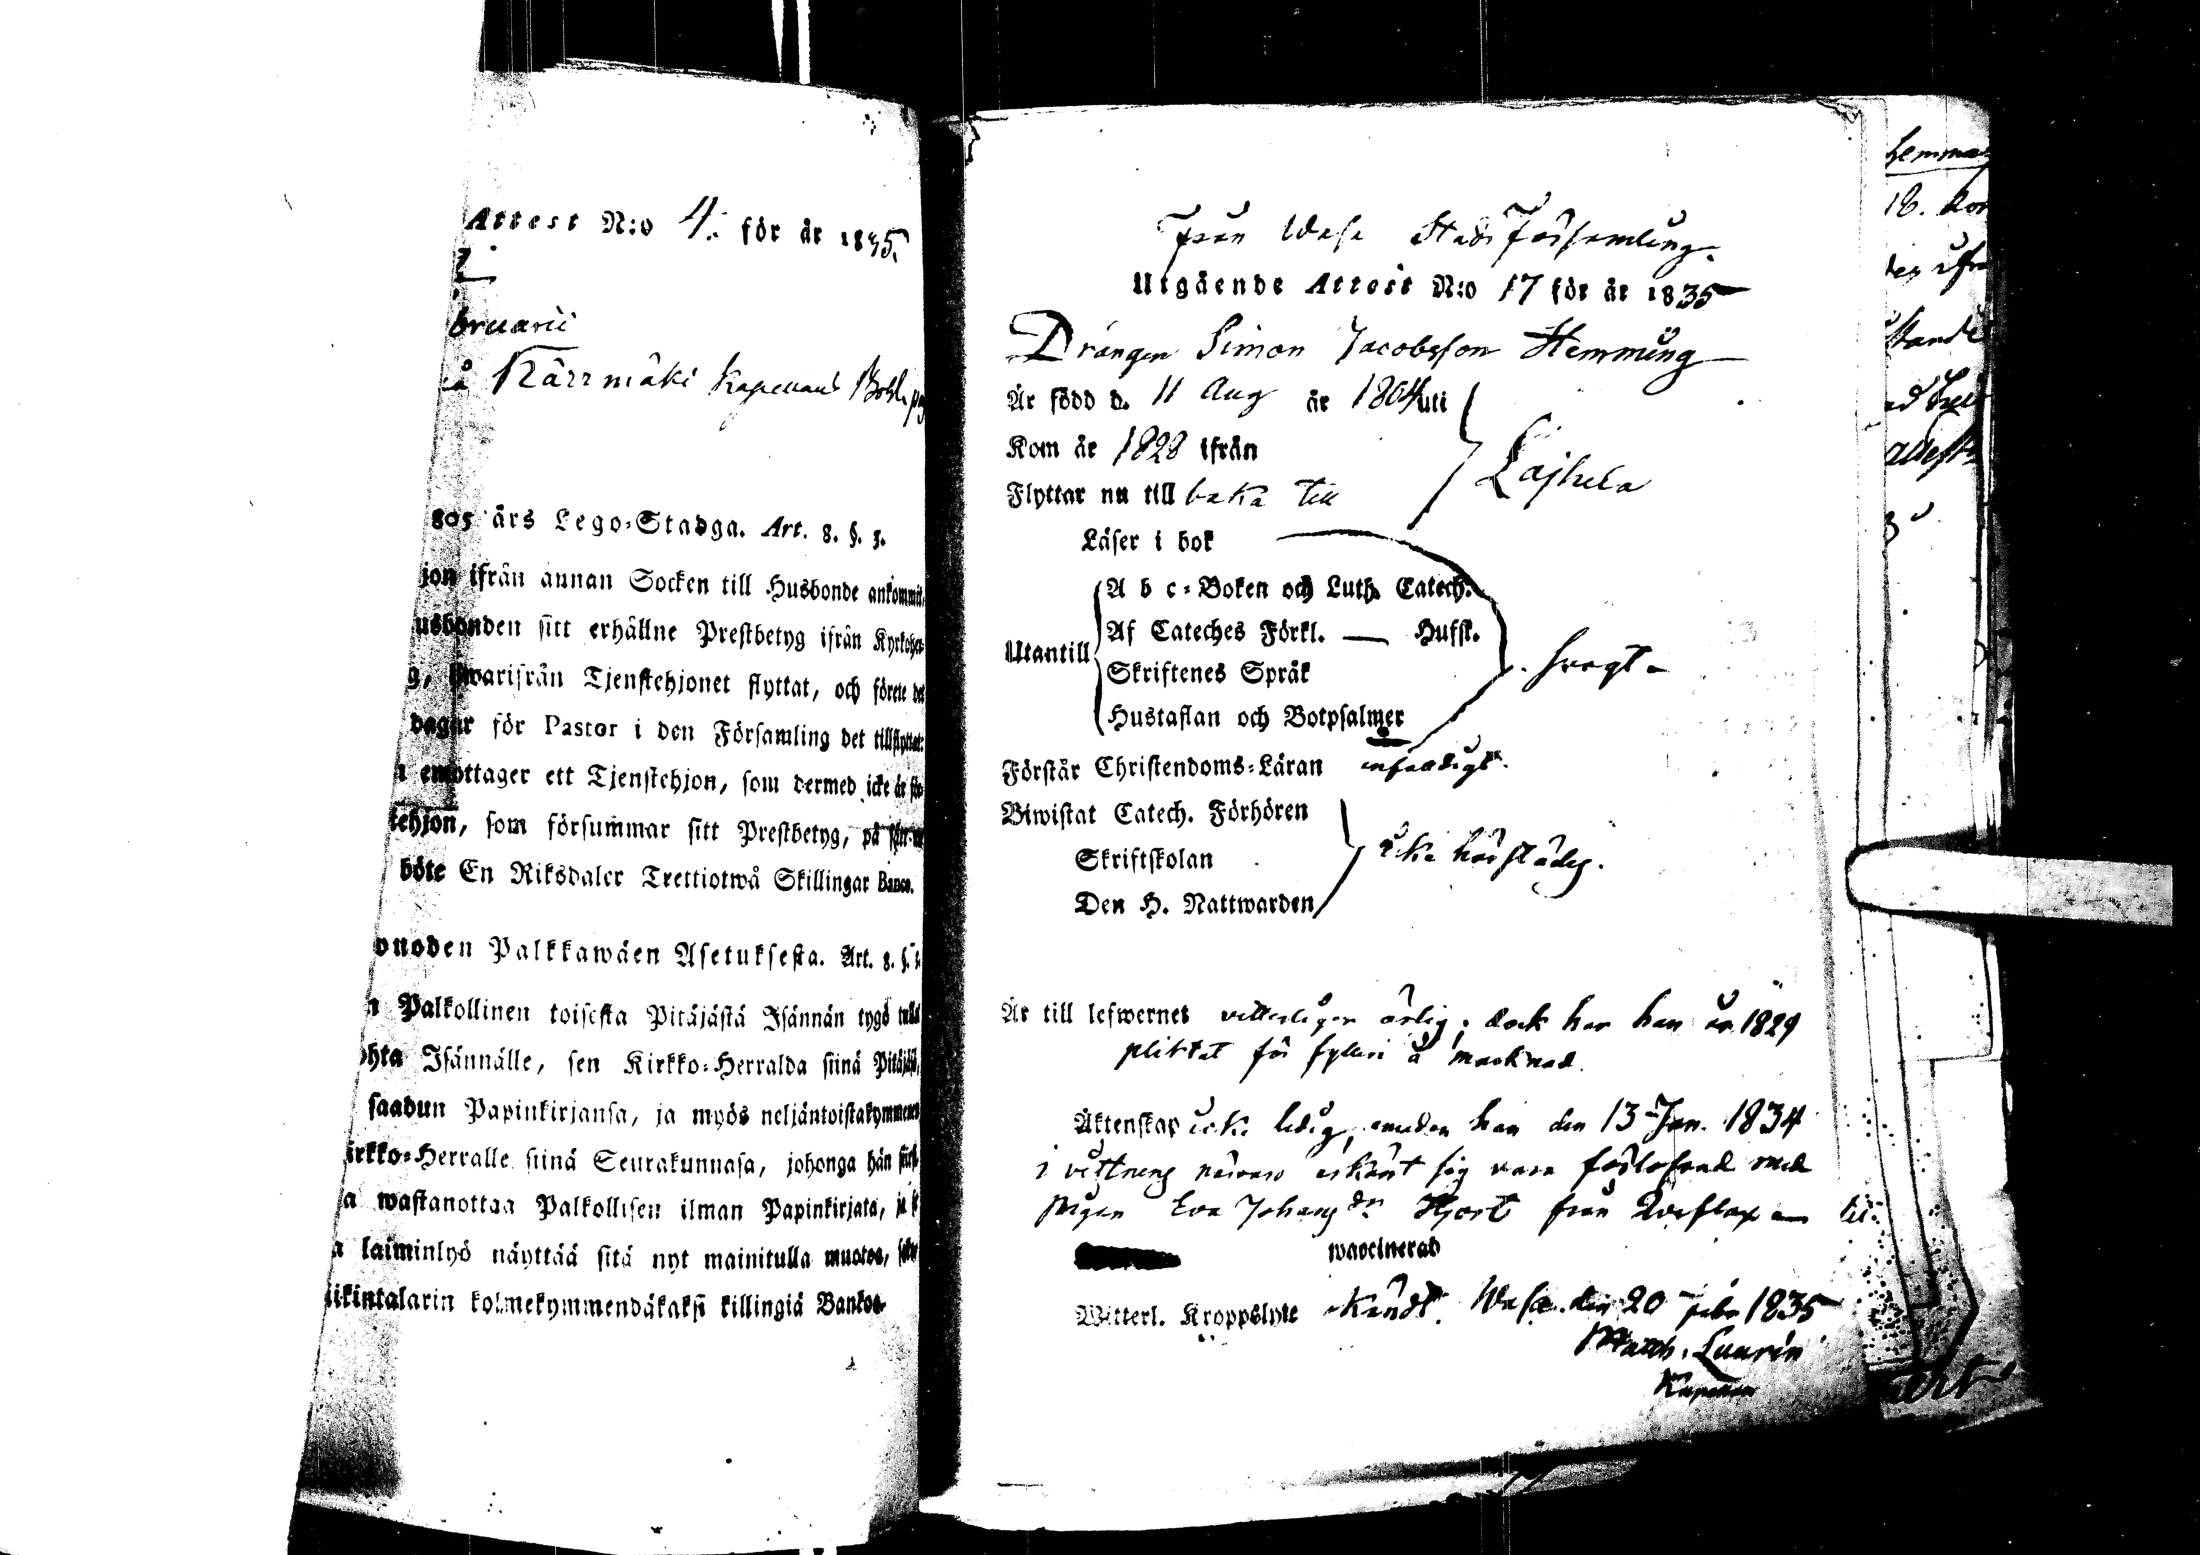 Attest N:o 4. för år 1835.
bruarii
Kärrmäki Kapellans
805 års Lego-Stadga. Art. 8. §. 3.
jon ifrån annan Socken till Husbonde ankommit,
usbonden sitt erhållne Prestbetyg ifrån Kyrkoher-
g, hwarifrån Tjenstehjonet flyttat, och förete det
dagar för Pastor i den Församling det tillflyttat:
emottager ett Tjenstehjon, som dermed icke är
tehjon, som försummar sitt Prestbetyg, på
böte En Riksdaler Trettiotwå Skillingar Banco.
vuoden Palkkawäen Asetuksesta. Art. 8. §. 3.
n Palkollinen toisesta Pitäjästä Isännän tygö tullut
ohta Isännälle, sen Kirkko-Herralda siinä Pitäjäsä,
saadun Papinkirjansa, ja myös neljäntoistakymmenen
irkko-Herralle siinä Seurakunnasa, johonga hän
a wastanottaa Palkollisen ilman Papinkirjata, ja
a laiminlyö näyttää sitä nyt mainitulla muotoa,
iikintalarin kolmekymmendäkaksi killingiä Bankos.
Från Wasa Stads Församling.
Utgående Attest N:o 17 för år 1835
Drängen Simon Jacobsson Hemming
Är född d. 11 Aug år 1804 uti
Kom år 1828 ifrån
Lajhela
Flyttar nu till baka till
Läser i bok
A b c-Boken och Luth. Catech.
Af Cateches Förkl. — Hufst.
Utantill
svagt
Skriftenes Språk
Hustaflan och Botpsalmer
Förstår Christendoms-Läran enfaldigt.
Biwistat Catech. Förhören
Skriftskolan
icke härstädes.
Den H. Nattwarden
Är till lefwernet vitterligen ärlig; dock har han år 1829
pliktat för fylleri å marknad.
Äktenskap icke ledig, emedan han den 13 Jan. 1834
i vittnens närvaro erkänt sig vara förlofvad med
pigan Eva Johansdr Hjort från Qveflax
waccinerad
Witterl. Kroppslyte okändt. Wasa den 20 Febr 1835
Matth. Laurén
Kapellan
hemma
18.